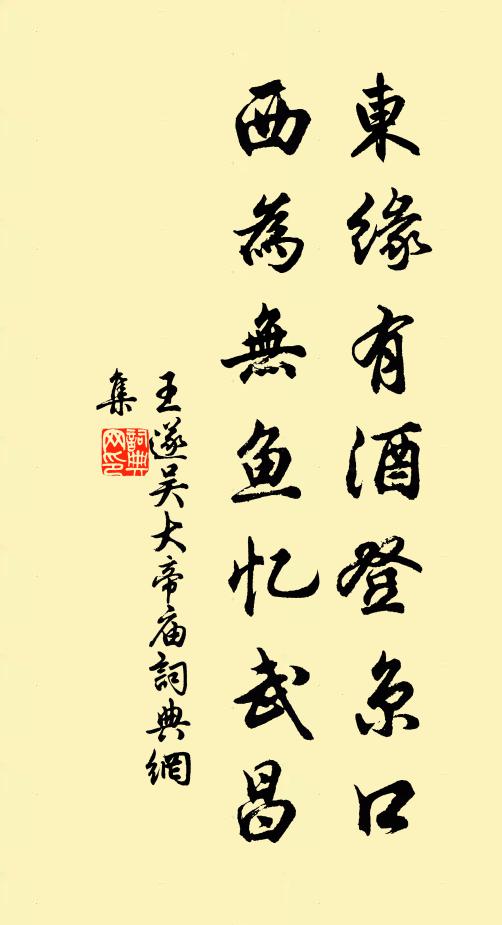 東緣有酒登京口
西為無鱼忆武昌
王遂吴大帝庙詞典網
集
詞典网印